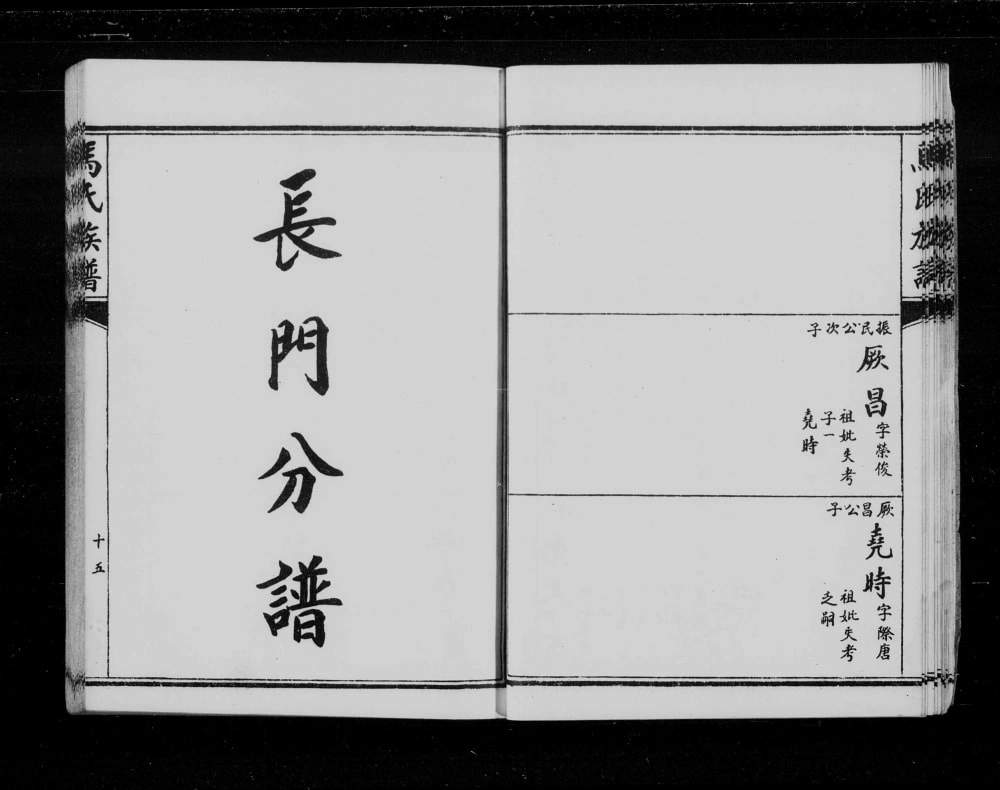 振民公次子
厥昌字榮俊
祖妣失考
子一
堯時
厥昌公子
堯時字際唐
祖妣失考
乏嗣
馬氏族譜
長門分譜
馬氏族譜
十五